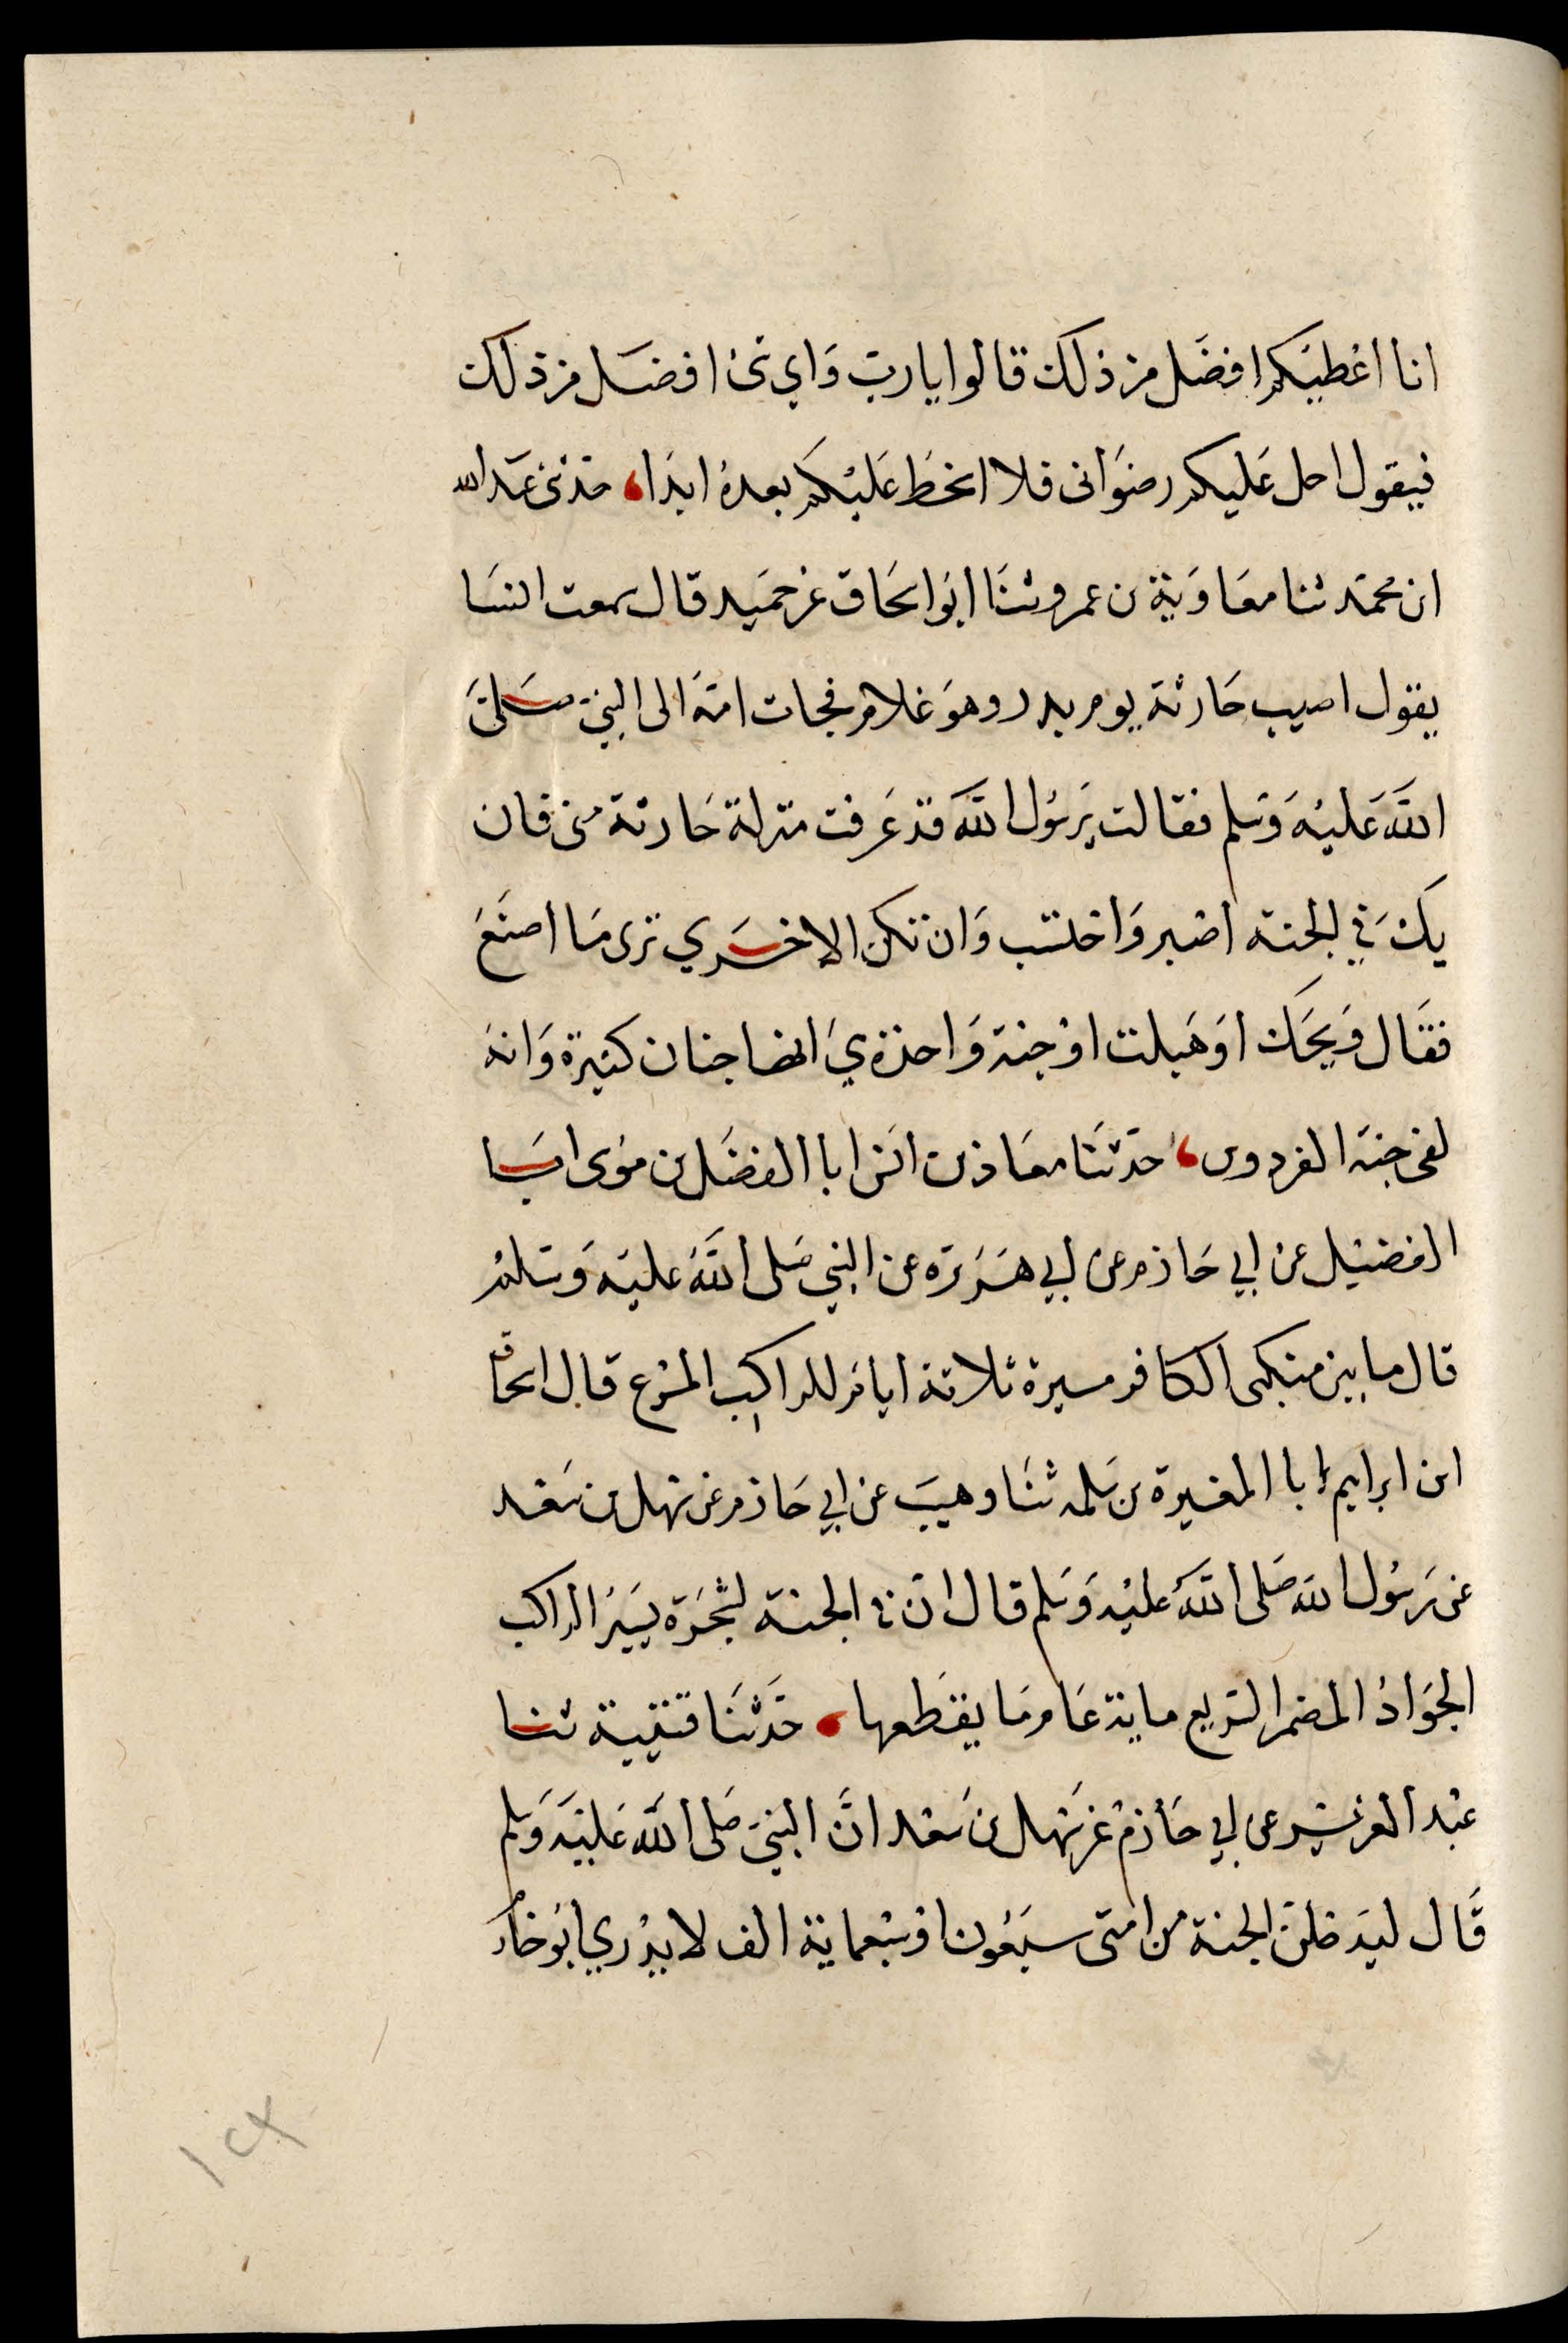 انا اعطيكم افضل من ذلك قالوا يا رب واي شئ افضل من ذلك
فيقول احل عليكم رضواني فلا اسخط عليكم بعده ابدا، حدثني عبد الله
ابن محمد ثنا معاوية بن عمرو ثنا ابو اسحاق عن حميد قال سمعت انسا
يقول اصيب حارثة يوم بدر وهو غلام فجات امه الى النبي صلى
الله عليه وسلم فقالت يرسول الله قد عرفت منزلة حارثة مني فان
يك في الجنة اصبر واحتسب وان تكن الاخري ترى ما اصنع
فقال ويحك اوهبلت اوجنة واحدة هي انها جنان كثيرة وانه
لفي جنة الفردوس، حدثنا معاذ بن انا الفضل بن موسى انبا
الفضيل عن ابي حازم عن ابي هريرة عن النبي صلى الله عليه وسلم
قال ما بين منكبى الكافر مسيرة ثلاثة ايام للراكب المسرع قال اسحاق
ابن ابراهيم انبا المغيرة بن سلمه ثنا وهيب عن ابي حازم عن سهل بن سعد
عن رسول الله صلى الله عليه وسلم قال ان في الجنة لشجرة يسير الراكب
الجواد المضمر السريع ماية عام ما يقطعها، حدثنا قتيبة ثنا
عبد العزيز عن ابي حازم عن سهل بن سعد ان النبي صلى الله عليه وسلم
قال ليدخلن الجنة من امتى سبعون او سبعماية الف لا يدري ابو حازم
١٢٤